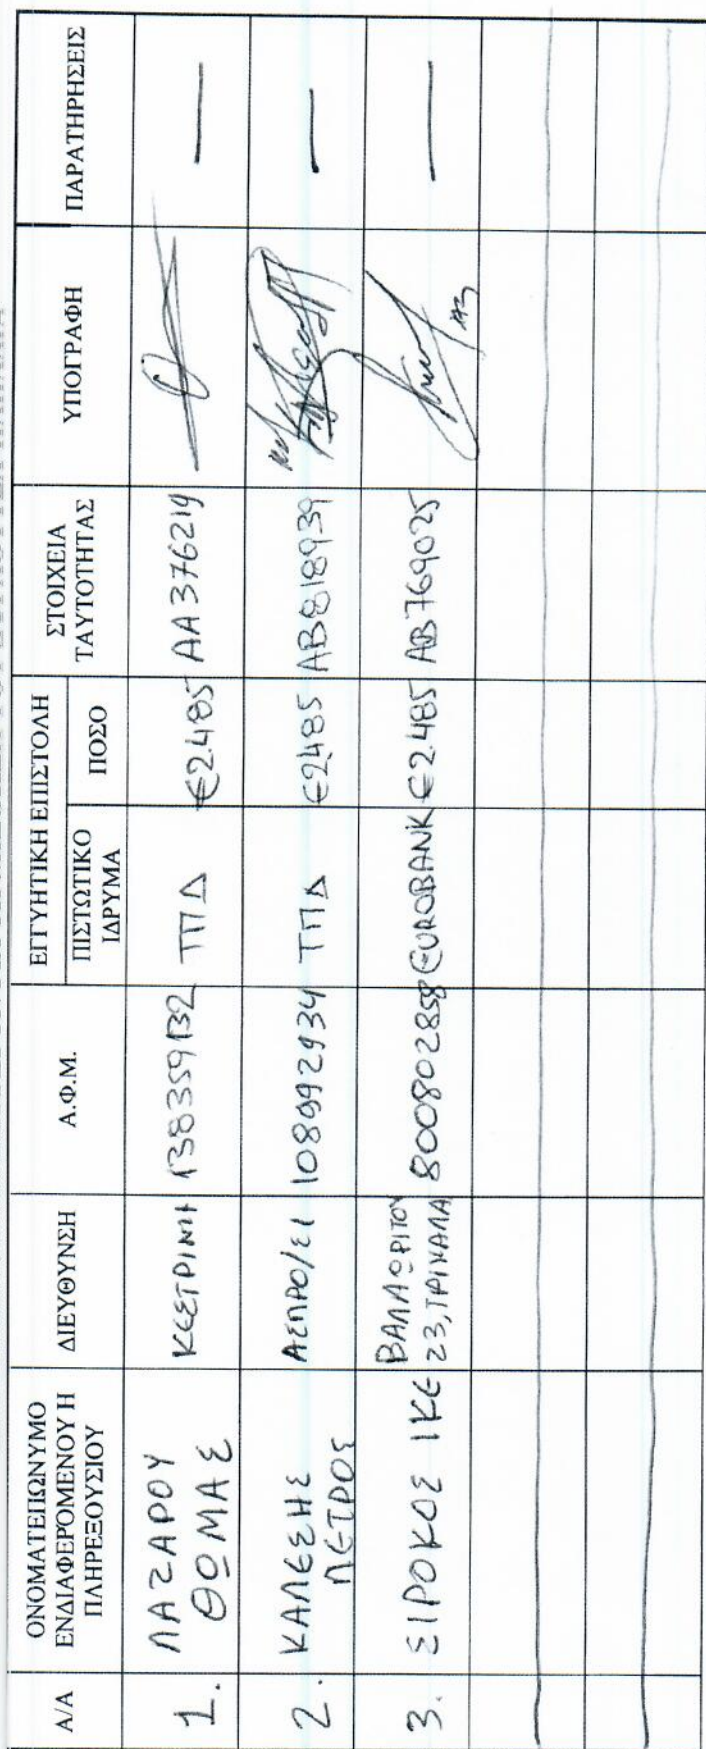 Α/Α
ΟΝΟΜΑΤΕΠΩΝΥΜΟ
ΕΝΔΙΑΦΕΡΟΜΕΝΟΥ Η
ΠΛΗΡΕΞΟΥΣΙΟΥ
ΔΙΕΥΘΥΝΣΗ
Α.Φ.Μ.
ΕΓΓΥΗΤΙΚΗ ΕΠΙΣΤΟΛΗ
ΠΙΣΤΩΤΙΚΟ
ΙΔΡΥΜΑ
ΠΟΣΟ
ΣΤΟΙΧΕΙΑ
ΤΑΥΤΟΤΗΤΑΣ
ΥΠΟΓΡΑΦΗ
ΠΑΡΑΤΗΡΗΣΕΙΣ
1.
ΛΑΖΑΡΟΥ
ΘΩΜΑΣ
ΚΕΣΤΡΙΝΗ
138359132
ΤΠΔ
€2.485
ΑΑ376219
—
2.
ΚΑΛΕΣΗΣ
ΠΕΤΡΟΣ
ΑΣΠΡΟ/ΣΙ
108992934
ΤΠΔ
€2485
ΑΒ818939
—
3.
ΣΙΡΟΚΟΣ ΙΚΕ
ΒΑΛΑΩΡΙΤΟΥ
23, ΤΡΙΚΑΛΑ
800802858
EUROBANK
€2.485
ΑΒ769025
—